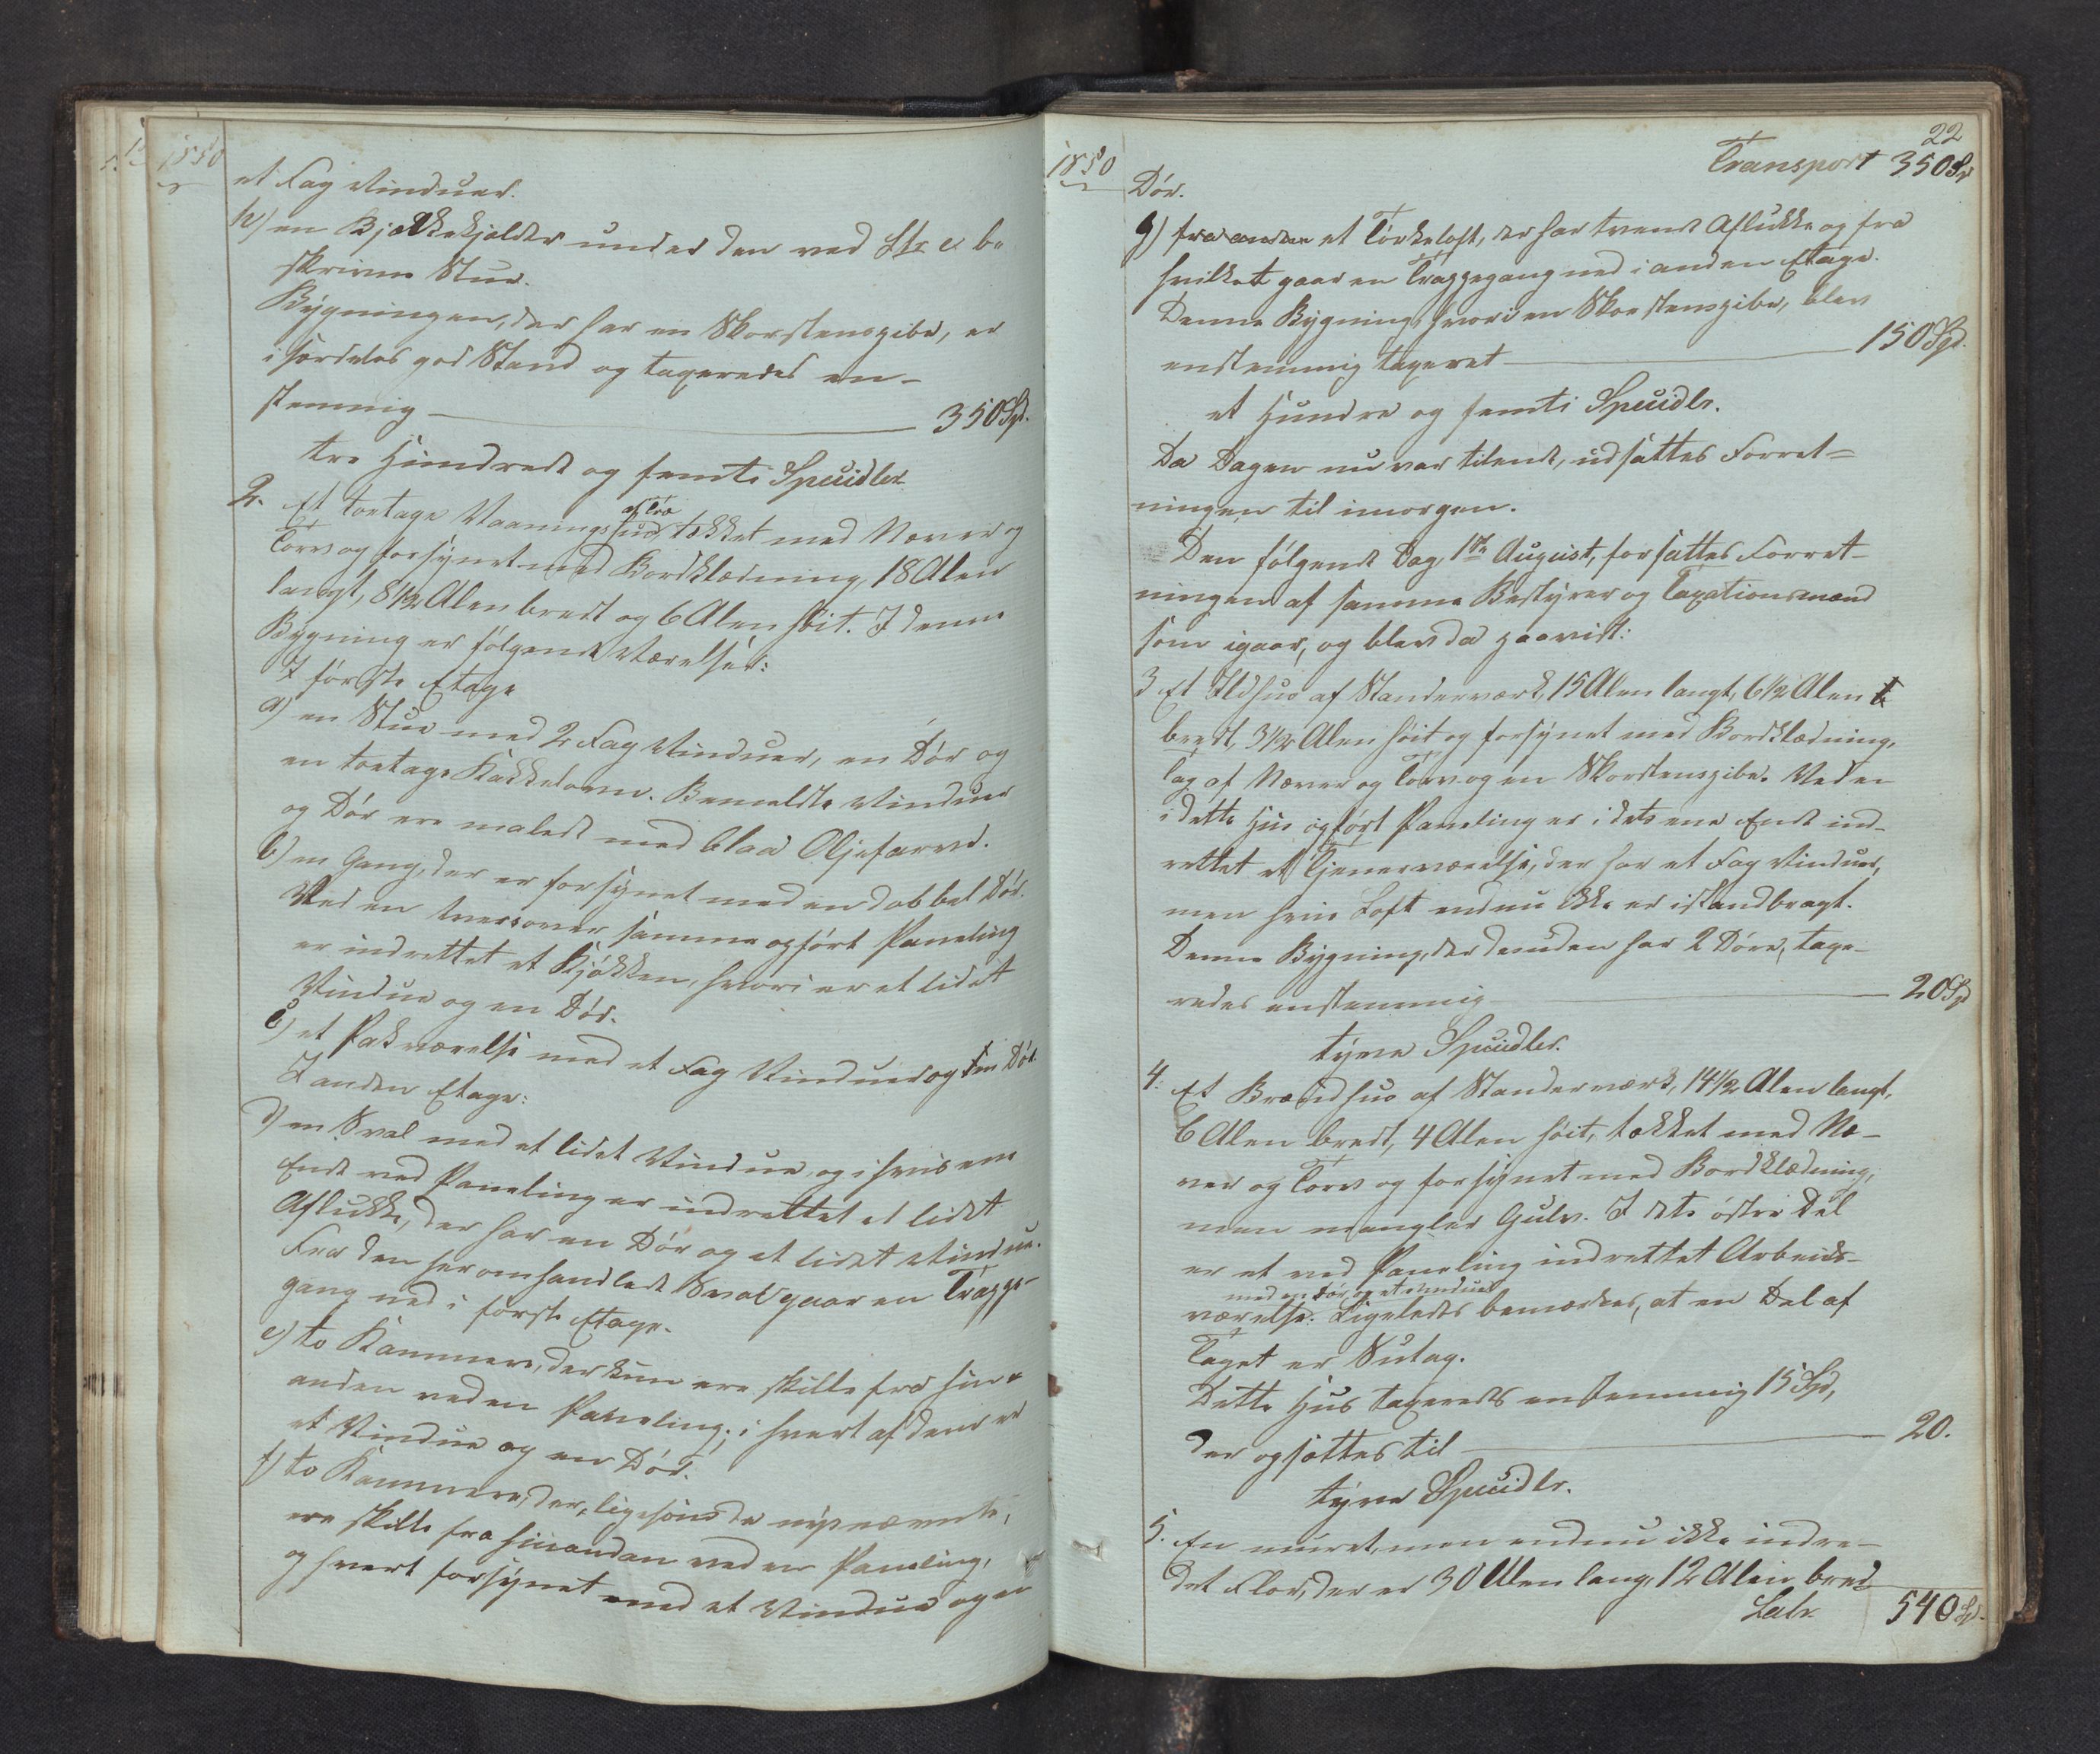 1850
et Fag Vinduer.
h) en Bjælkekjelder under den ved Ltr. e be
skrevne Stue.
Bygningen, der har en Skorstenspibe, er
i særdeles god Stand og taxeredes en-
stemmig 350 Spd.
tre Hundrede og femti Speciedlr.
2. Et toetages Vaaningshuus af Træ tækket med Næver og
Torv og forsynet med Bordklædning, 18 Alen
langt, 8 1/2 Alen bredt og 6 Alen høit. I denne
Bygning er følgende Værelser:
I første Etage
a) en Stue med 2 Fag Vinduer, en Dør og
en toetages Kakkelovn. Bemeldte Vinduer
og Dør ere malede med blaa Oljefarve.
b) en Gang, der er forsynet med en dobbel Dør.
Ved en tversover samme opført Paneling
er indrettet et Kjøkken, hvori er et lidet
Vindue og en Dør.
c) et Pakværelse med et Fag Vinduer og en Dør
I anden Etage:
d) en Sval med et lidet Vindue og i hvis ene
Ende ved Paneling er indrettet et lidet
Aflukke, der har en Dør og et lidet Vindue.
Fra den heromhandlede Sval gaar en Trappe-
gang ned i første Etage.
e) to Kammere, der kun ere skilte fra hin-
anden ved en Paneling; i hvert af dem er
et Vindue og en Dør.
f) to Kammere, der, ligesom de nysnævnte,
ere skilte fra hinanden ved en Paneling,
og hvert forsynet med et Vindue og en
1850
22
Transport 350 Spd
Dør.
g) et Tørkeloft, der har tvende Aflukke og fra
hvilket gaar en Trappegang ned i anden Etage.
Denne Bygning, hvori en Skorstenspibe, blev
enstemmig taxeret 150 Spd.
et Hundre og femti Speciedlr.
Da Dagen nu var tilende, udsattes Forret-
ningen til imorgen.
Den følgende Dag 1ste August, forsattes Forret-
ningen af samme Bestyrer og Taxationsmænd
som igaar, og blev da paavist:
3 Et Ildhus af Standerværk, 15 Alen langt, 6 1/2 Alen
bredt, 3 1/2 Alen høit og forsynet med Bordklædning,
Tag af Næver og Torv og en Skorstenspibe. Ved en
i dette Hus opført Paneling er i dets ene Ende ind-
rettet et Tjenerværelse, der har et Fag Vinduer,
men hvis Loft endnu ikke er istandbragt.
Denne Bygning, der desuden har 2 Døre, taxe-
redes enstemmig 20 Spd
tyve Speciedlr.
4. Et Brændhus af Standerværk, 14 1/2 Alen langt,
6 Alen bredt, 4 Alen høit, tækket med Næ-
ver og Torv og forsynet med Bordklædning,
men mangler Gulv. I dets østre Del
er et ved Paneling indrettet Arbeids-
med en Dør og et Vindue
værelse. Ligeledes bemærkes, at en Del af
Taget er Sutag.
Dette Hus taxeredes enstemmig 15 Spd,
der opsattes til 20.
tyve Speciedlr.
5. En muret, men endnu ikke indre-
det Flor, der er 30 Alen lang, 12 Alen bred
Latr. 540 Spd.